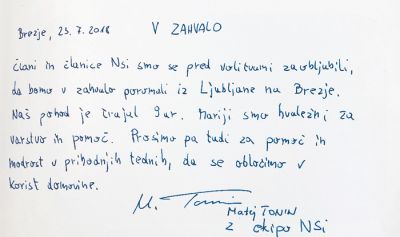 Brezje, 25. 7. 2018 V ZAHVALO
člani in članice NSi smo se pred volitvami zaobljubili,
da bomo v zahvalo poromali iz Ljubljane na Brezje.
Naš pohod je trajal 9 ur. Mariji smo hvaležni za
varstvo in pomoč. Prosimo pa tudi za pomoč in
modrost v prihodnjih tednih, da se odločimo v
korist domovine.
M. Tonin
Matej TONIN
z ekipo NSi